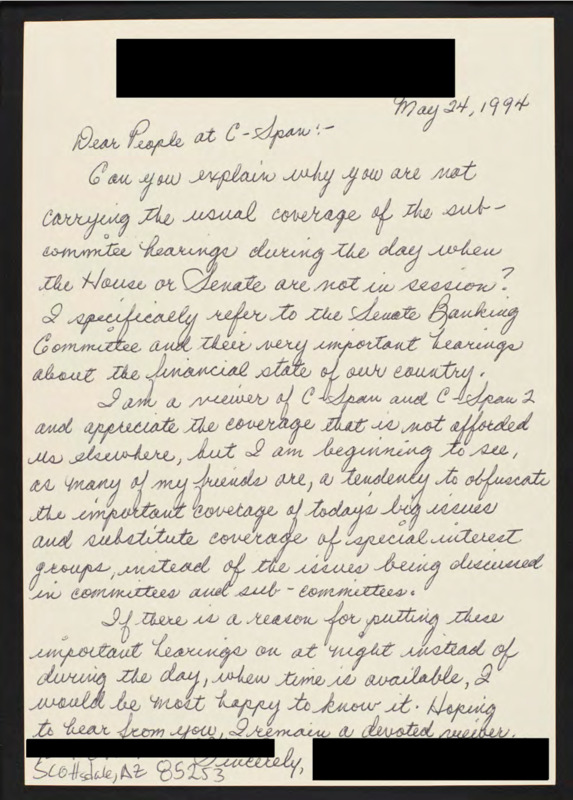 May 24, 1994
Dear People at C-Span:-
Can you explain why you are not
carrying the usual coverage of the sub-
commitee hearings during the day when
the House or Senate are not in session?
I specifically refer to the Senate Banking
Committee and their very important hearings
about the financial state of our country.
I am a viewer of C-Span and C-Span 2
and appreciate the coverage that is not afforded
us elsewhere, but I am beginning to see,
as many of my friends are, a tendency to obfuscate
the important coverage of today's big issues
and substitute coverage of special interest
groups, instead of the issues being discussed
in committees and sub-committees.
If there is a reason for putting these
important hearings on at night instead of
during the day, when time is available, I
would be most happy to know it. Hoping
to hear from you, I remain a devoted viewer.
Sincerely,
Scottsdale, AZ 85253